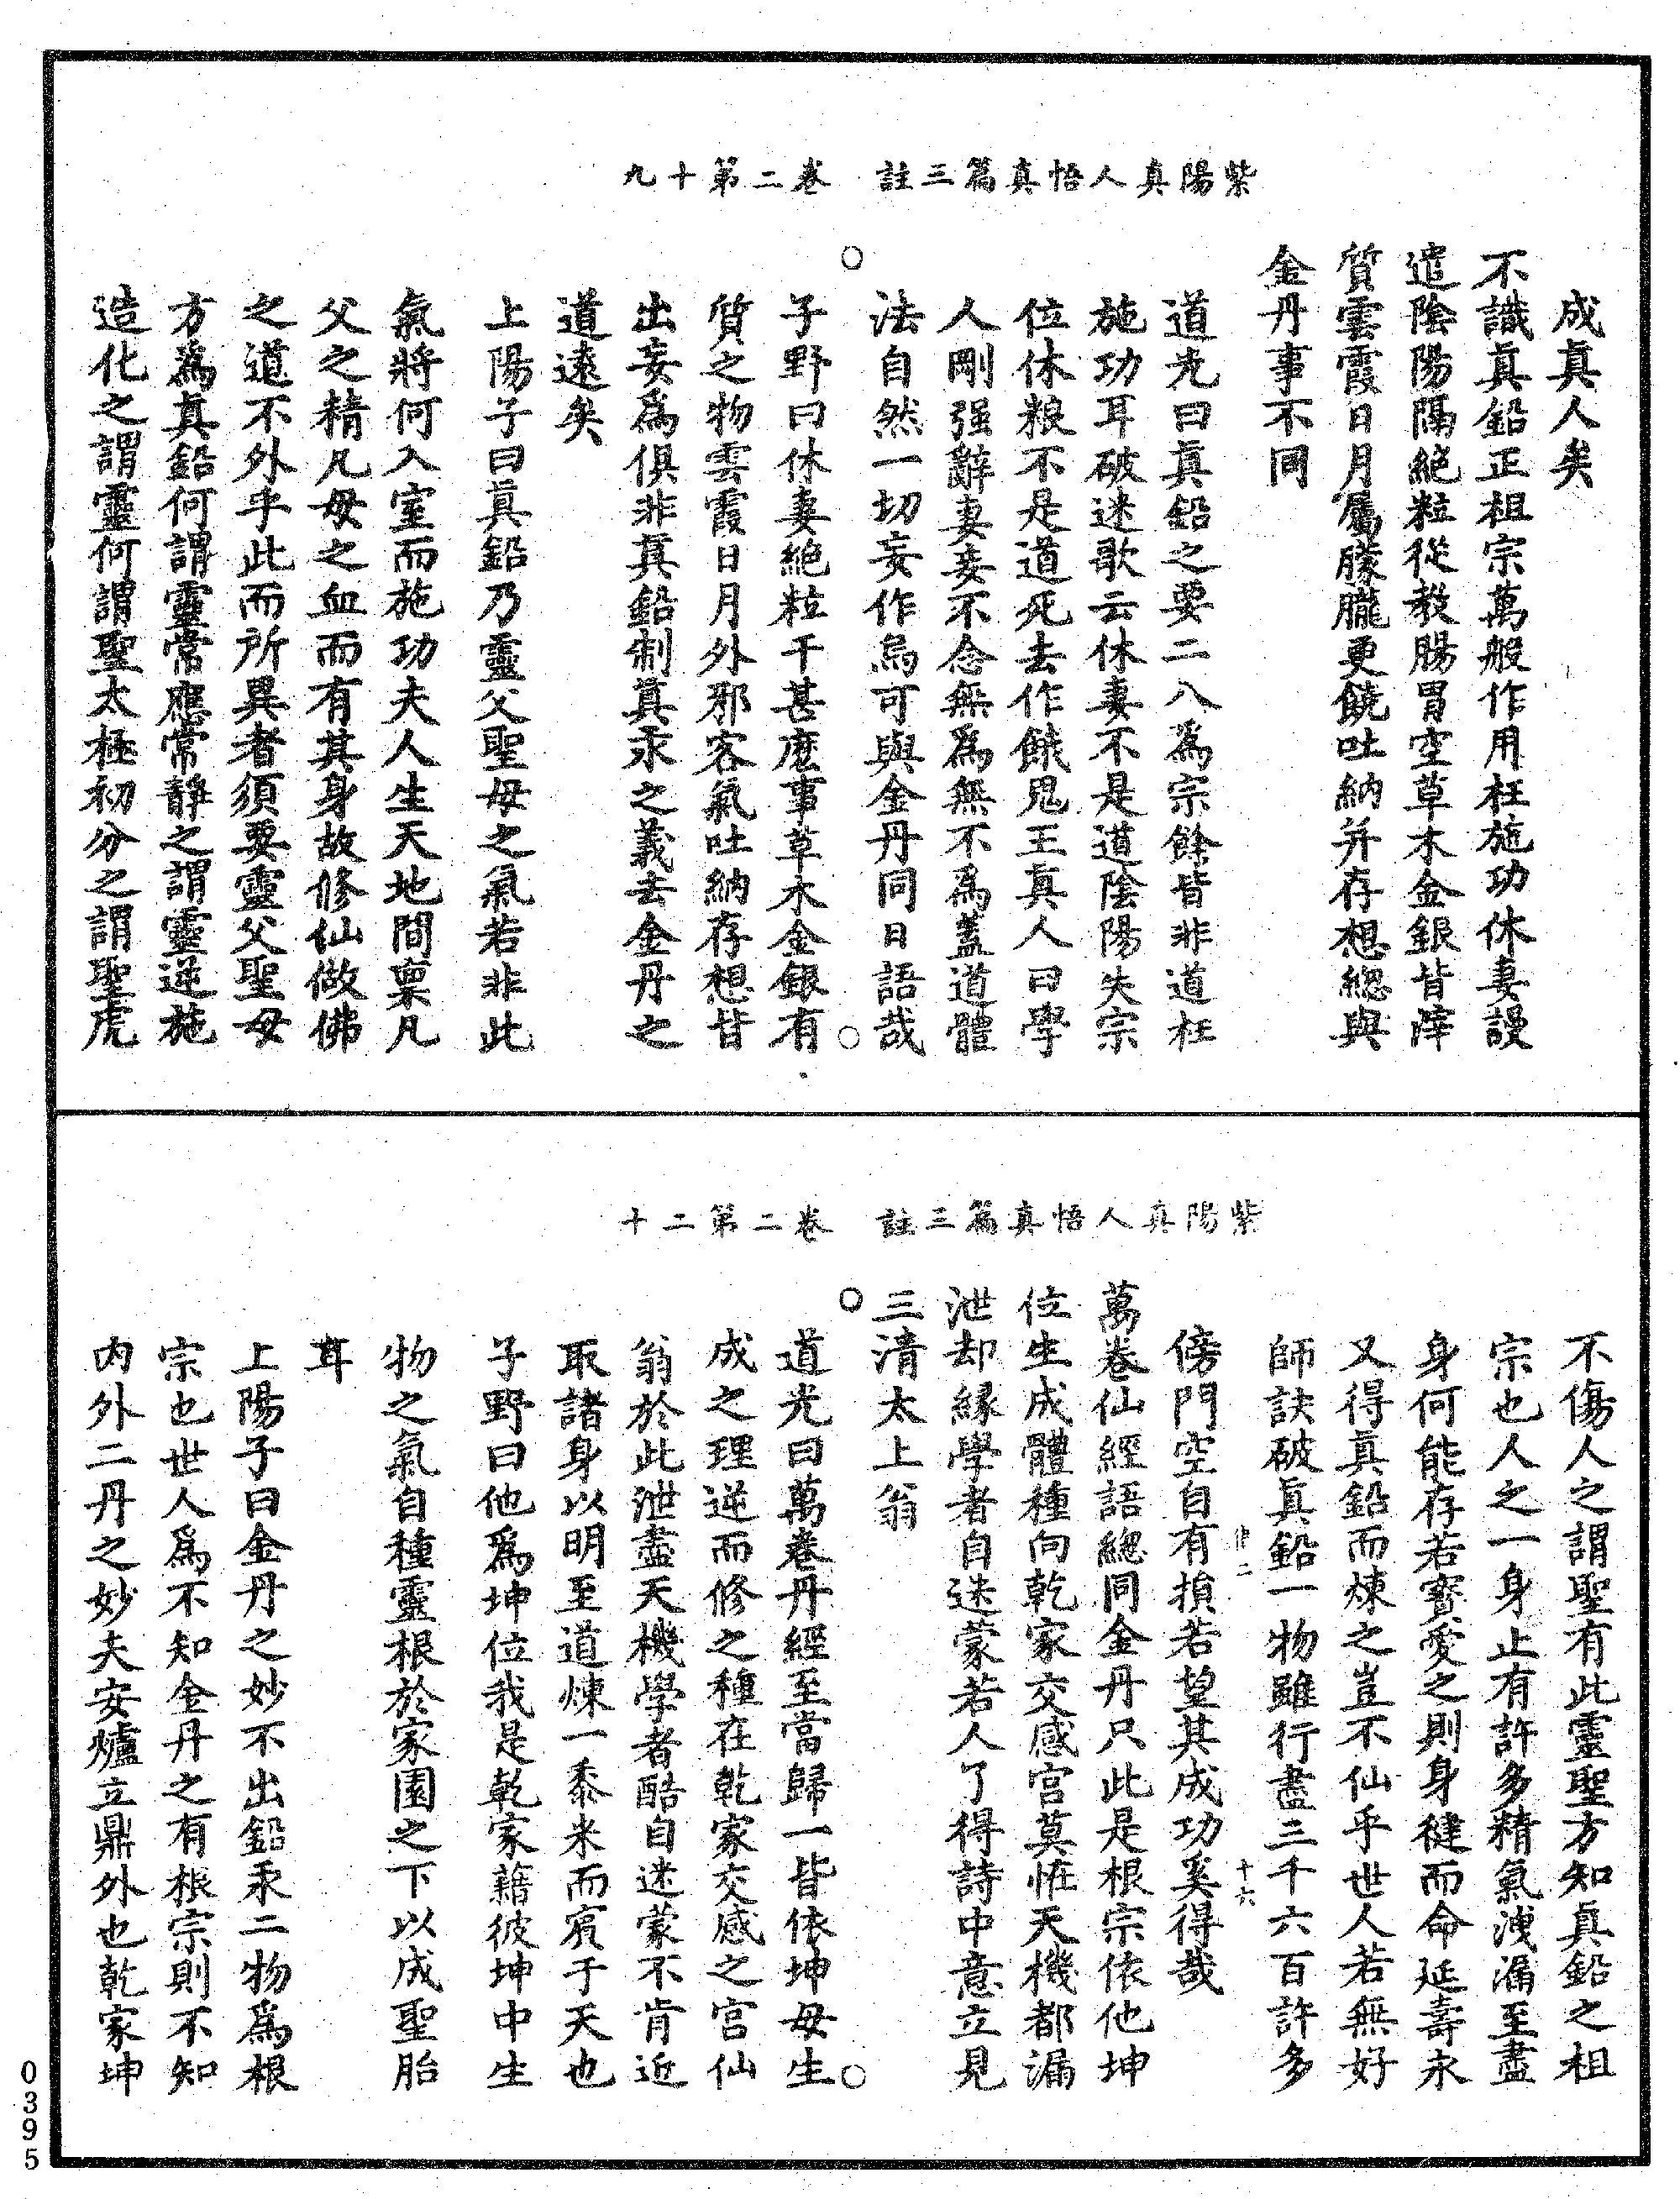 紫陽真人悟真篇三註　卷二第十九
成眞人矣
不識眞鉛正祖宗萬般作用枉施功休妻謾
遣陰陽隔絕粒從教腸胃空草木金銀皆滓
質雲霞日月屬朦朧更饒吐納并存想總與
金丹事不同
道光曰眞鉛之要二八爲宗餘皆非道枉
施功耳破迷歌云休妻不是道陰陽失宗
位休粮不是道死去作餓鬼王真人曰學
人剛强辭妻妾不念無爲無不爲蓋道體
法自然一切妄作烏可與金丹同日語哉
子野曰休妻絕粒干甚麽事草木金銀有
質之物雲霞日月外邪客氣吐納存想皆
出妄爲俱非眞鉛制眞汞之義去金丹之
道遠矣
上陽子曰眞鉛乃靈父聖母之氣若非此
氣將何入室而施功夫人生天地間禀凡
父之精凡母之血而有其身故修仙做佛
之道不外乎此而所異者須要靈父聖母
方爲眞鉛何謂靈常應常靜之謂靈逆施
造化之謂靈何謂聖太極初分之謂聖虎
紫陽真人悟真篇三註　卷二第二十
不傷人之謂聖有此靈聖方知眞鉛之祖
宗也人之一身止有許多精氣洩漏至盡
身何能存若寳愛之則身健而命延壽永
又得眞鉛而煉之豈不仙乎世人若無好
師訣破眞鉛一物雖行盡三千六百許多
十六
傍門空自有損若望其成功奚得哉
萬卷仙經語總同金丹只此是根宗依他坤
位生成體種向乾家交感宫莫怪天機都漏
泄却緣學者自迷蒙若人了得詩中意立見
三清太上翁
道光曰萬卷丹經至當歸一皆依坤母生
成之理逆而修之種在乾家交感之宫仙
翁於此泄盡天機學者酷自迷蒙不肯近
取諸身以明至道煉一黍米而賓于天也
子野曰他爲坤位我是乾家藉彼坤中生
物之氣自種靈根於家園之下以成聖胎
耳
上陽子曰金丹之妙不出鉛汞二物爲根
宗也世人爲不知金丹之有根宗則不知
内外二丹之妙夫安爐立鼎外也乾家坤
0395